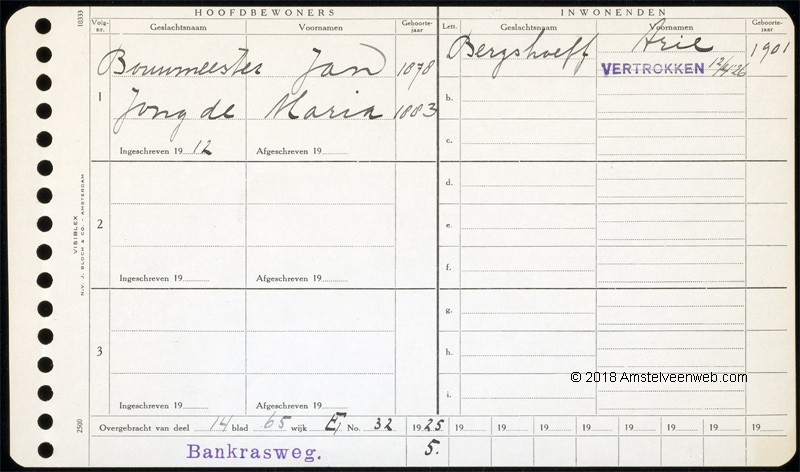 HOOFDBEWONERS INWONENDEN
Volg-nr. Geslachtsnaam Voornamen Geboorte-jaar Lett. Geslachtsnaam Voornamen Geboorte-jaar
10333
Bouwmeester Jan 1878 Bergshoeff Arie 1901
VERTROKKEN
b.
1 Jong de Maria 1883
c.
Ingeschreven 19 12 Afgeschreven 19
d.
2 e.
f.
Ingeschreven 19 Afgeschreven 19
VISIBLEX
N.V. J. BLOCH & CO. - AMSTERDAM
g.
3 h.
© 2018 Amstelveenweb.com
i.
Ingeschreven 19 Afgeschreven 19
2500
Overgebracht van deel 14 blad 65 wijk E, No. 32 1925 19 19 19 19 19 19 19 19
Bankrasweg. 5.